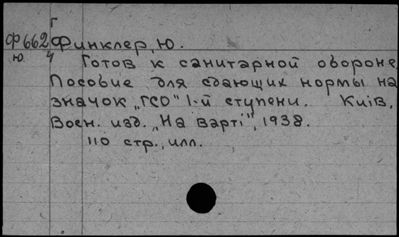 Г
Ф662 Финклер, Ю.
ю. 4 Готов к санитарной обороне
Пособие для сдающих нормы на
значок „ГСО" I-й ступени. Київ,
Воен. изд. „На варті", 1938.
110 стр., илл.